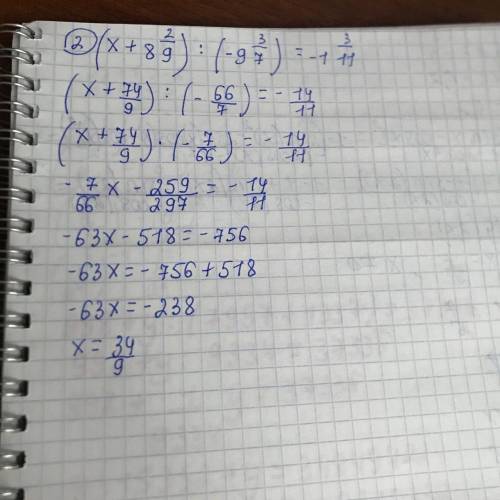 ② (x + 8 2/9) : (-9 3/7) = -1 3/11
(x + 74/9) : (- 66/7) = - 14/11
(x + 74/9) · (- 7/66) = - 14/11
- 7/66 x - 259/297 = - 14/11
-63x - 518 = -756
-63x = - 756 + 518
-63x = -238
x = 34/9